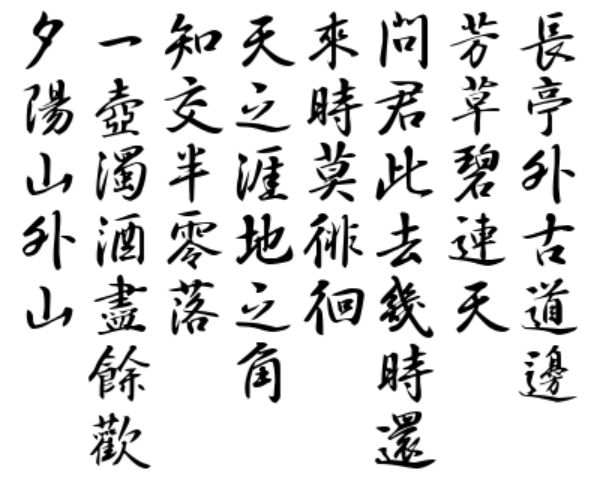 長亭外古道邊
芳草碧連天
問君此去幾時還
來時莫徘徊
天之涯地之角
知交半零落
一壺濁酒盡餘歡
夕陽山外山